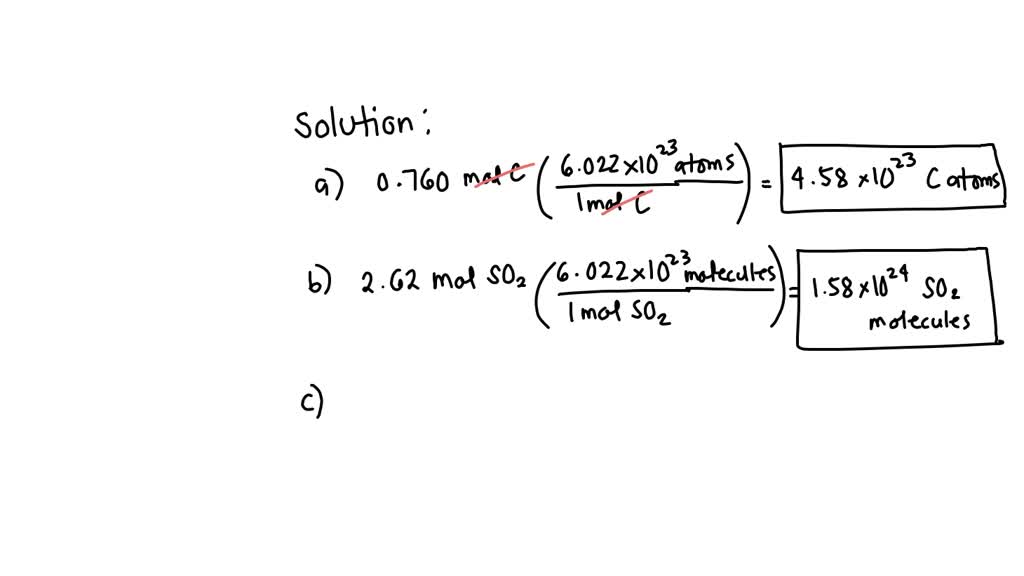 Solution:
a) 0.760 mol C (6.022×10²³ atoms / 1 mol C) = 4.58×10²³ C atoms
b) 2.62 mol SO₂ (6.022×10²³ molecules / 1 mol SO₂) = 1.58×10²⁴ SO₂ molecules
c)